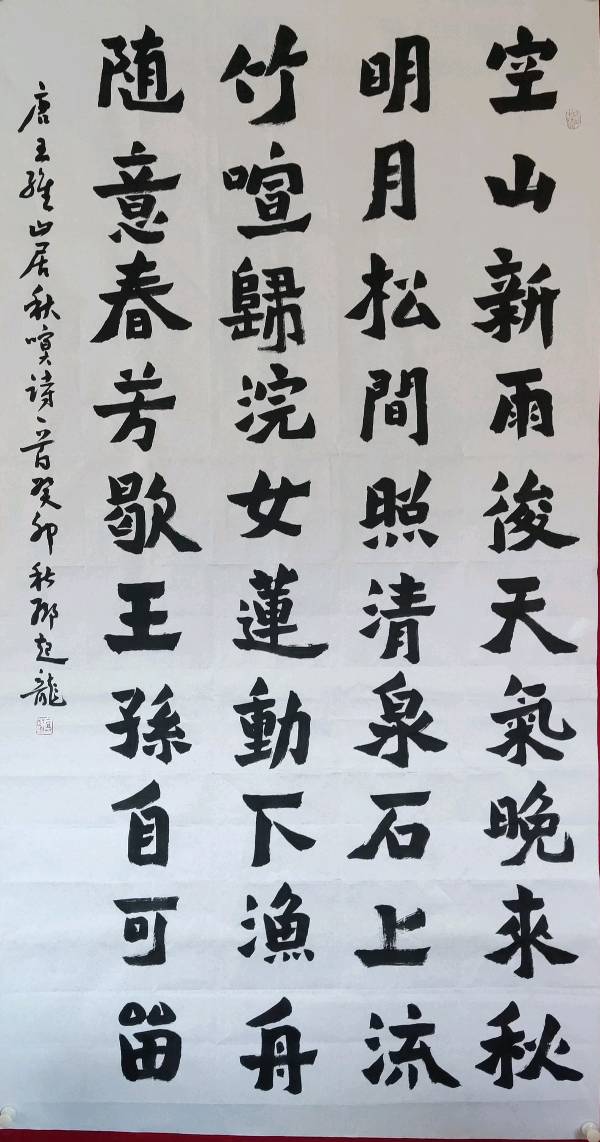 空山新雨後天氣晚來秋
明月松間照清泉石上流
竹喧歸浣女蓮動下漁舟
随意春芳歇王孫自可留
唐王維山居秋暝詩一首癸卯秋邢起龍